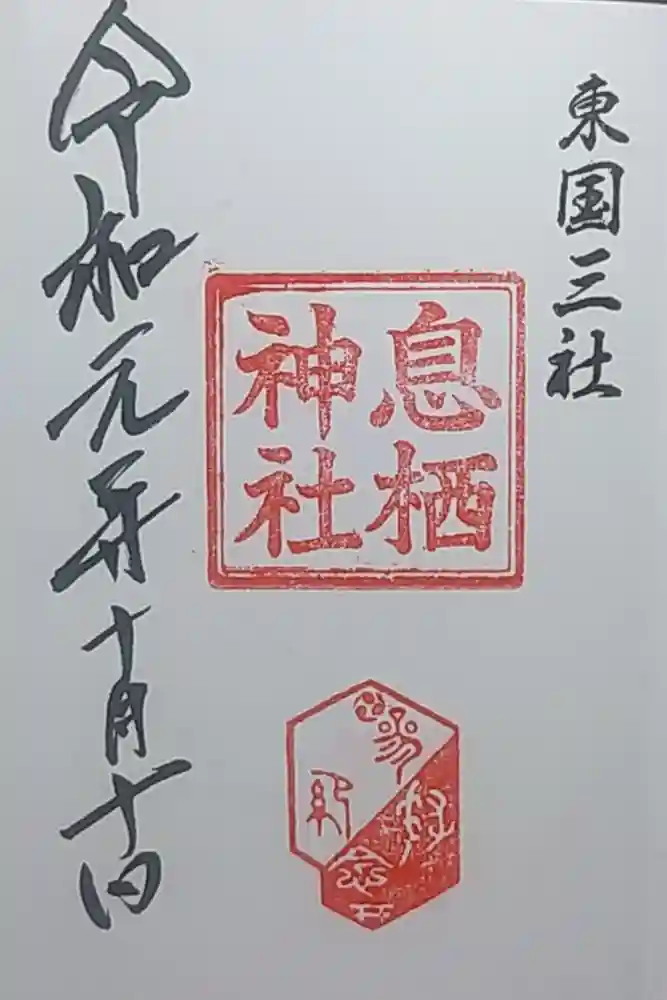 東国三社
息栖
神社
参拝
記念
令和元年十月十日